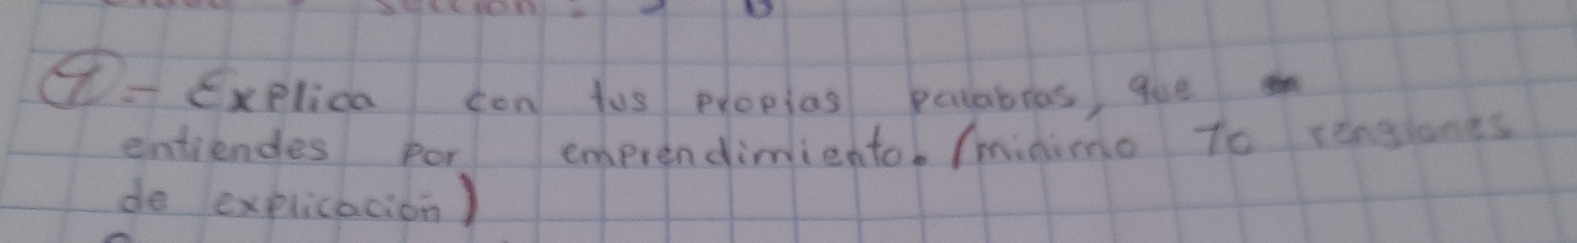 sección:
9.- Explica con tus propias palabras, que
entiendes por emprendimiento. (minimo 10 renglones
de explicación)